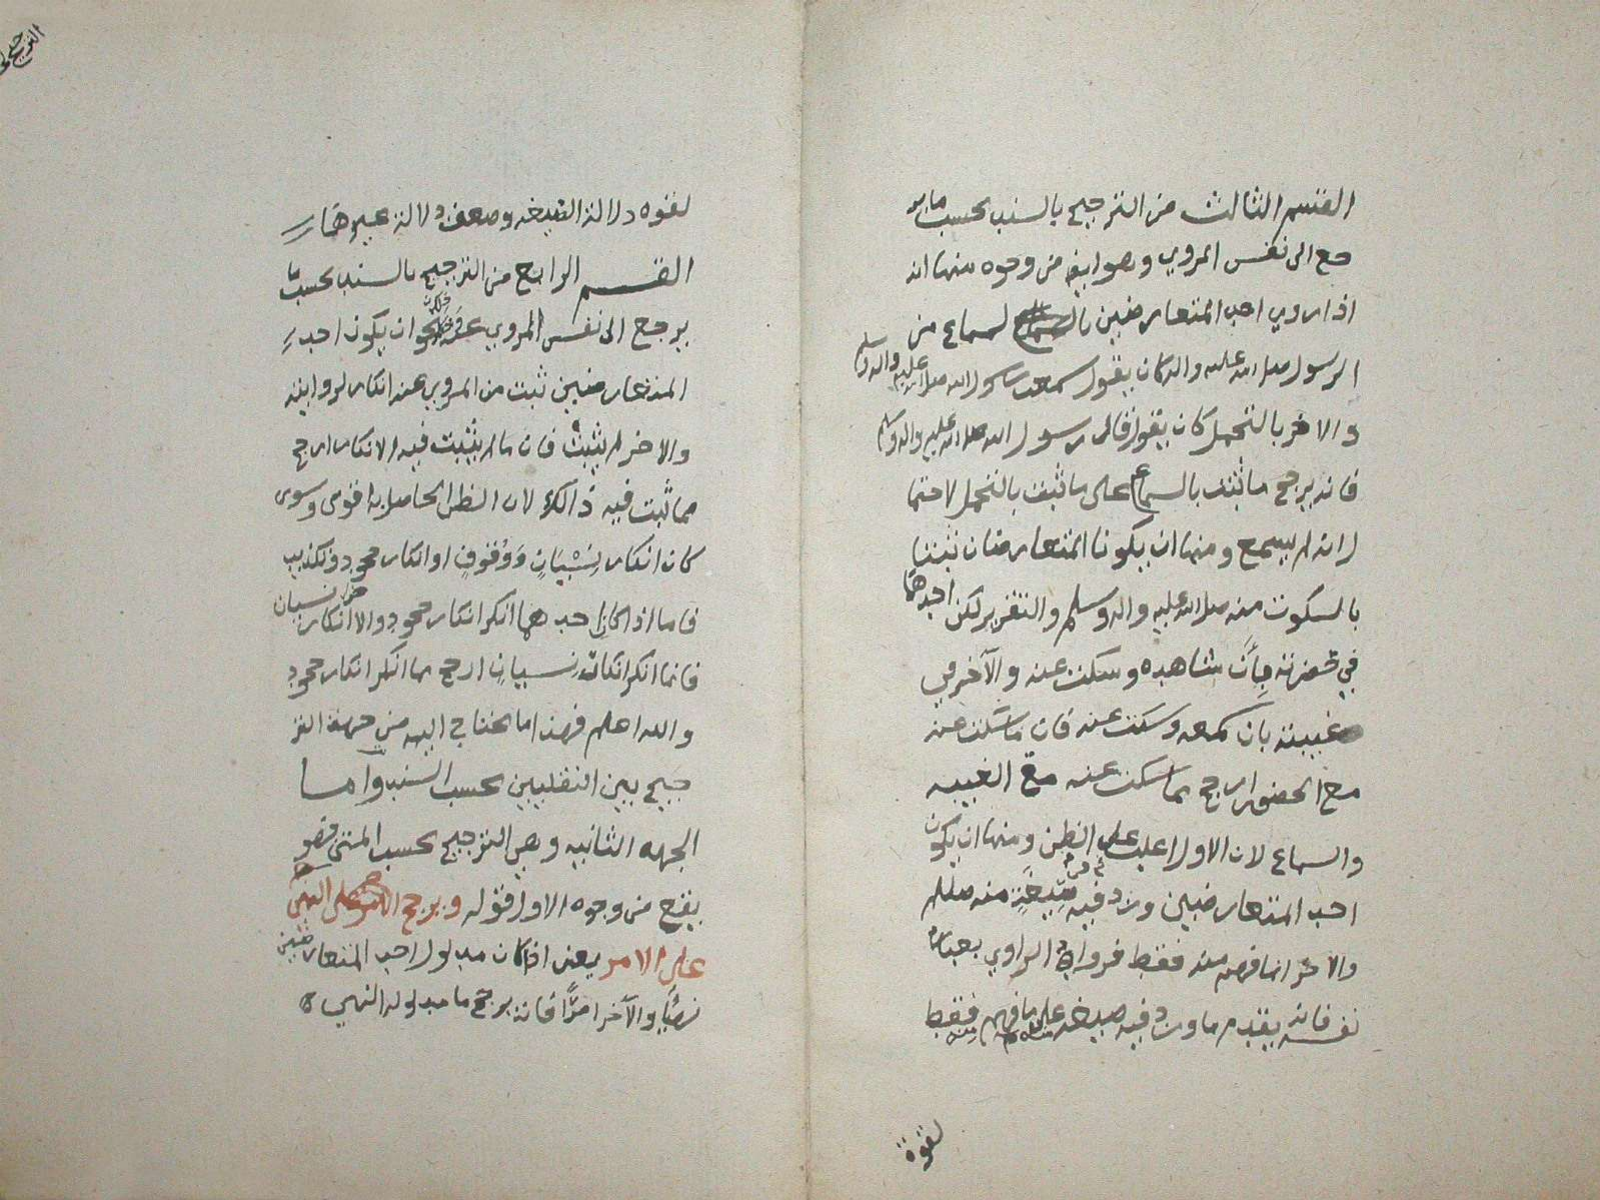 القسم الثالث من الترجيح بالسند بحسب ما ير
جع الى نفس المروي وهو ايضا من وجوه منها انه
اذا روي احد المتعارضين بالسماع لسماع من
الرسول صلى الله عليه واله كان يقول سمعت رسول الله صلى الله عليه واله وسلم
والاخر بالتحمل كان يقول قال رسول الله صلى الله عليه واله وسلم
فانه يرجح ما ثبت بالسماع على ما ثبت بالتحمل لاحتما
ل انه لم يسمع ومنها ان يكونا المتعارضان ثبتا
بالسكوت منه صلى الله عليه واله وسلم والتقرير لكن احدهما
في حضرته بأن شاهده وسكت عنه والآخر في
غيبته بان سمعه وسكت عنه فان ما سكت عنه
مع الحضور ارجح مما سكت عنه مع الغيبه
والسماع لان الاول اغلب على الظن ومنها ان يكون
احد المتعارضين ورد فيه صيغة منه صللم
والآخر انما فهم منه فقط فرواه الراوي بعبارة
نفسه فانه يقدم ما ورد فيه صيغه على ما فهم منه فقط
لقوة
لقوه دلالة الصيغه وضعف دلالة غيرها
القسم الرابع من الترجيح بالسند بحسب ما
يرجع الى نفس المروي عنه وذلك نحو ان يكون احد
المتعارضين ثبت من المروي عنه انكار لروايته
والاخر لم يثبت فان ما لم يثبت فيه الانكار ارجح
مما ثبت فيه ذالك لان الظن الحاصل به اقوى وسوى
كان انكار نسيان ووقوف او انكار جحود وتكذيب
فاما اذا كان احدهما انكر انكار جحود والا انكار نسيان
فانما انكر انكار نسيان ارجح مما انكر انكار جحود
والله اعلم فهذا ما يحتاج اليه من جهة التر
جيح بين النقليين بحسب السند واما
الجهه الثانيه وهي الترجيح بحسب المتن فهو
يقع من وجوه الاول قوله ويرجح النهي
على الامر يعني اذا كان مدلول احد المتعارضين
نهيًا والآخر امرًا فانه يرجح ما مدلوله النهي ه